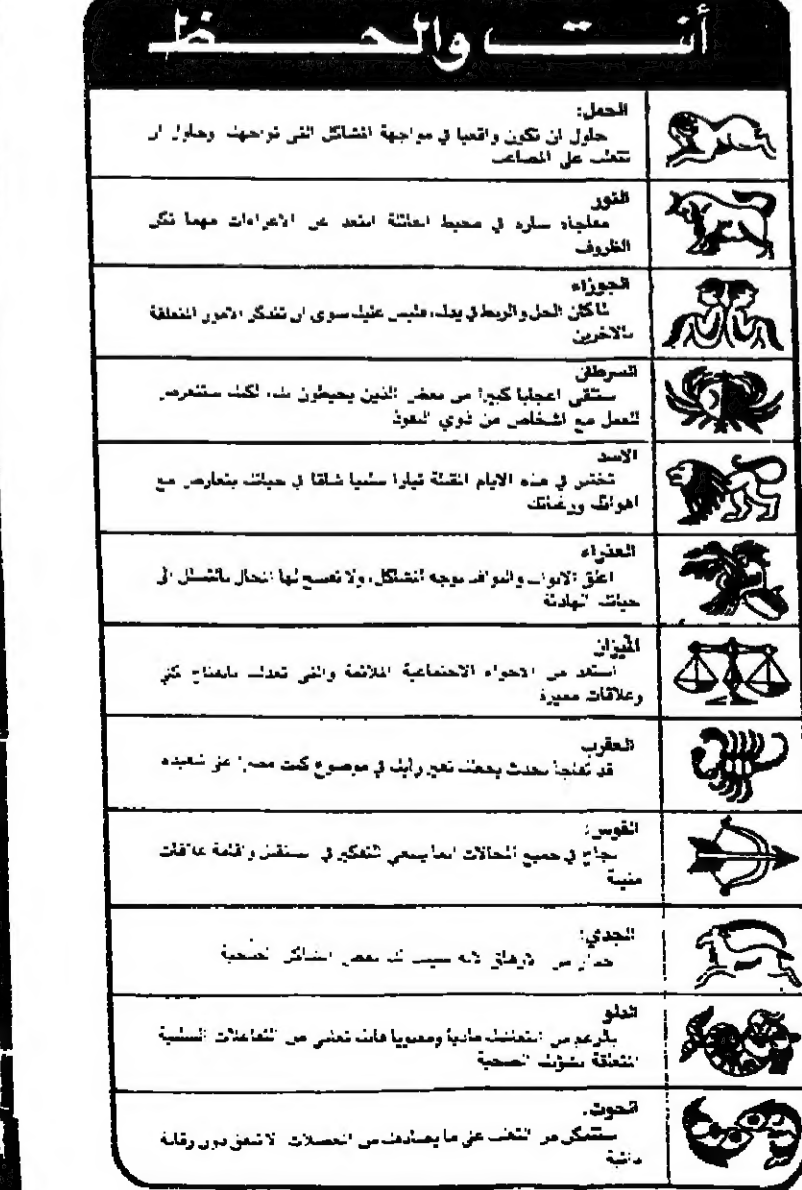 أنت والحظ
الحمل:
حاول ان تكون واقعيا في مواجهة المشاكل التي تواجهك وحاول ان
تتغلب على المصاعب
الثور
مفاجاة سارة في محيط العائلة ابتعد عن الاغراءات مهما تكن
الظروف
الجوزاء
لك الحل والربط في يدك، فليس عليك سوى ان تتذكر الامور المتعلقة
بالاخرين
السرطان
ستلقى اعجابا كبيرا من بعض الذين يحيطون بك، لكنك ستتعرض
للعمل مع اشخاص من ذوي النفوذ
الاسد
تختبر في هذه الايام المقبلة تيارا سلبيا شاقا في حياتك يتعارض مع
اهوائك ورغباتك
العذراء
اغلق الابواب والنوافذ بوجه المشاكل، ولا تفسح لها المجال بالتسلل الى
حياتك الهادئة
الميزان
استفد من الاجواء الاجتماعية الملائمة والتي تعدك بانفتاح
وعلاقات مميزة
العقرب
قد تفاجأ بحدث يجعلك تغير رأيك في موضوع كنت مصرا على تنفيذه
القوس:
نجاح في جميع المجالات انما ينبغي التفكير في مستقبل واقامة علاقات
متينة
الجدي:
حذار من الارهاق لانه سبب لك بعض المشاكل الصحية
الدلو
بالرغم من انتعاشك ماديا ومعنويا فانك تعاني من التفاعلات السلبية
المتعلقة بشؤونك الصحية
الحوت.
ستتمكن من التغلب على ما يصادفك من المعضلات لا تنفق دون رقابة
ذاتية